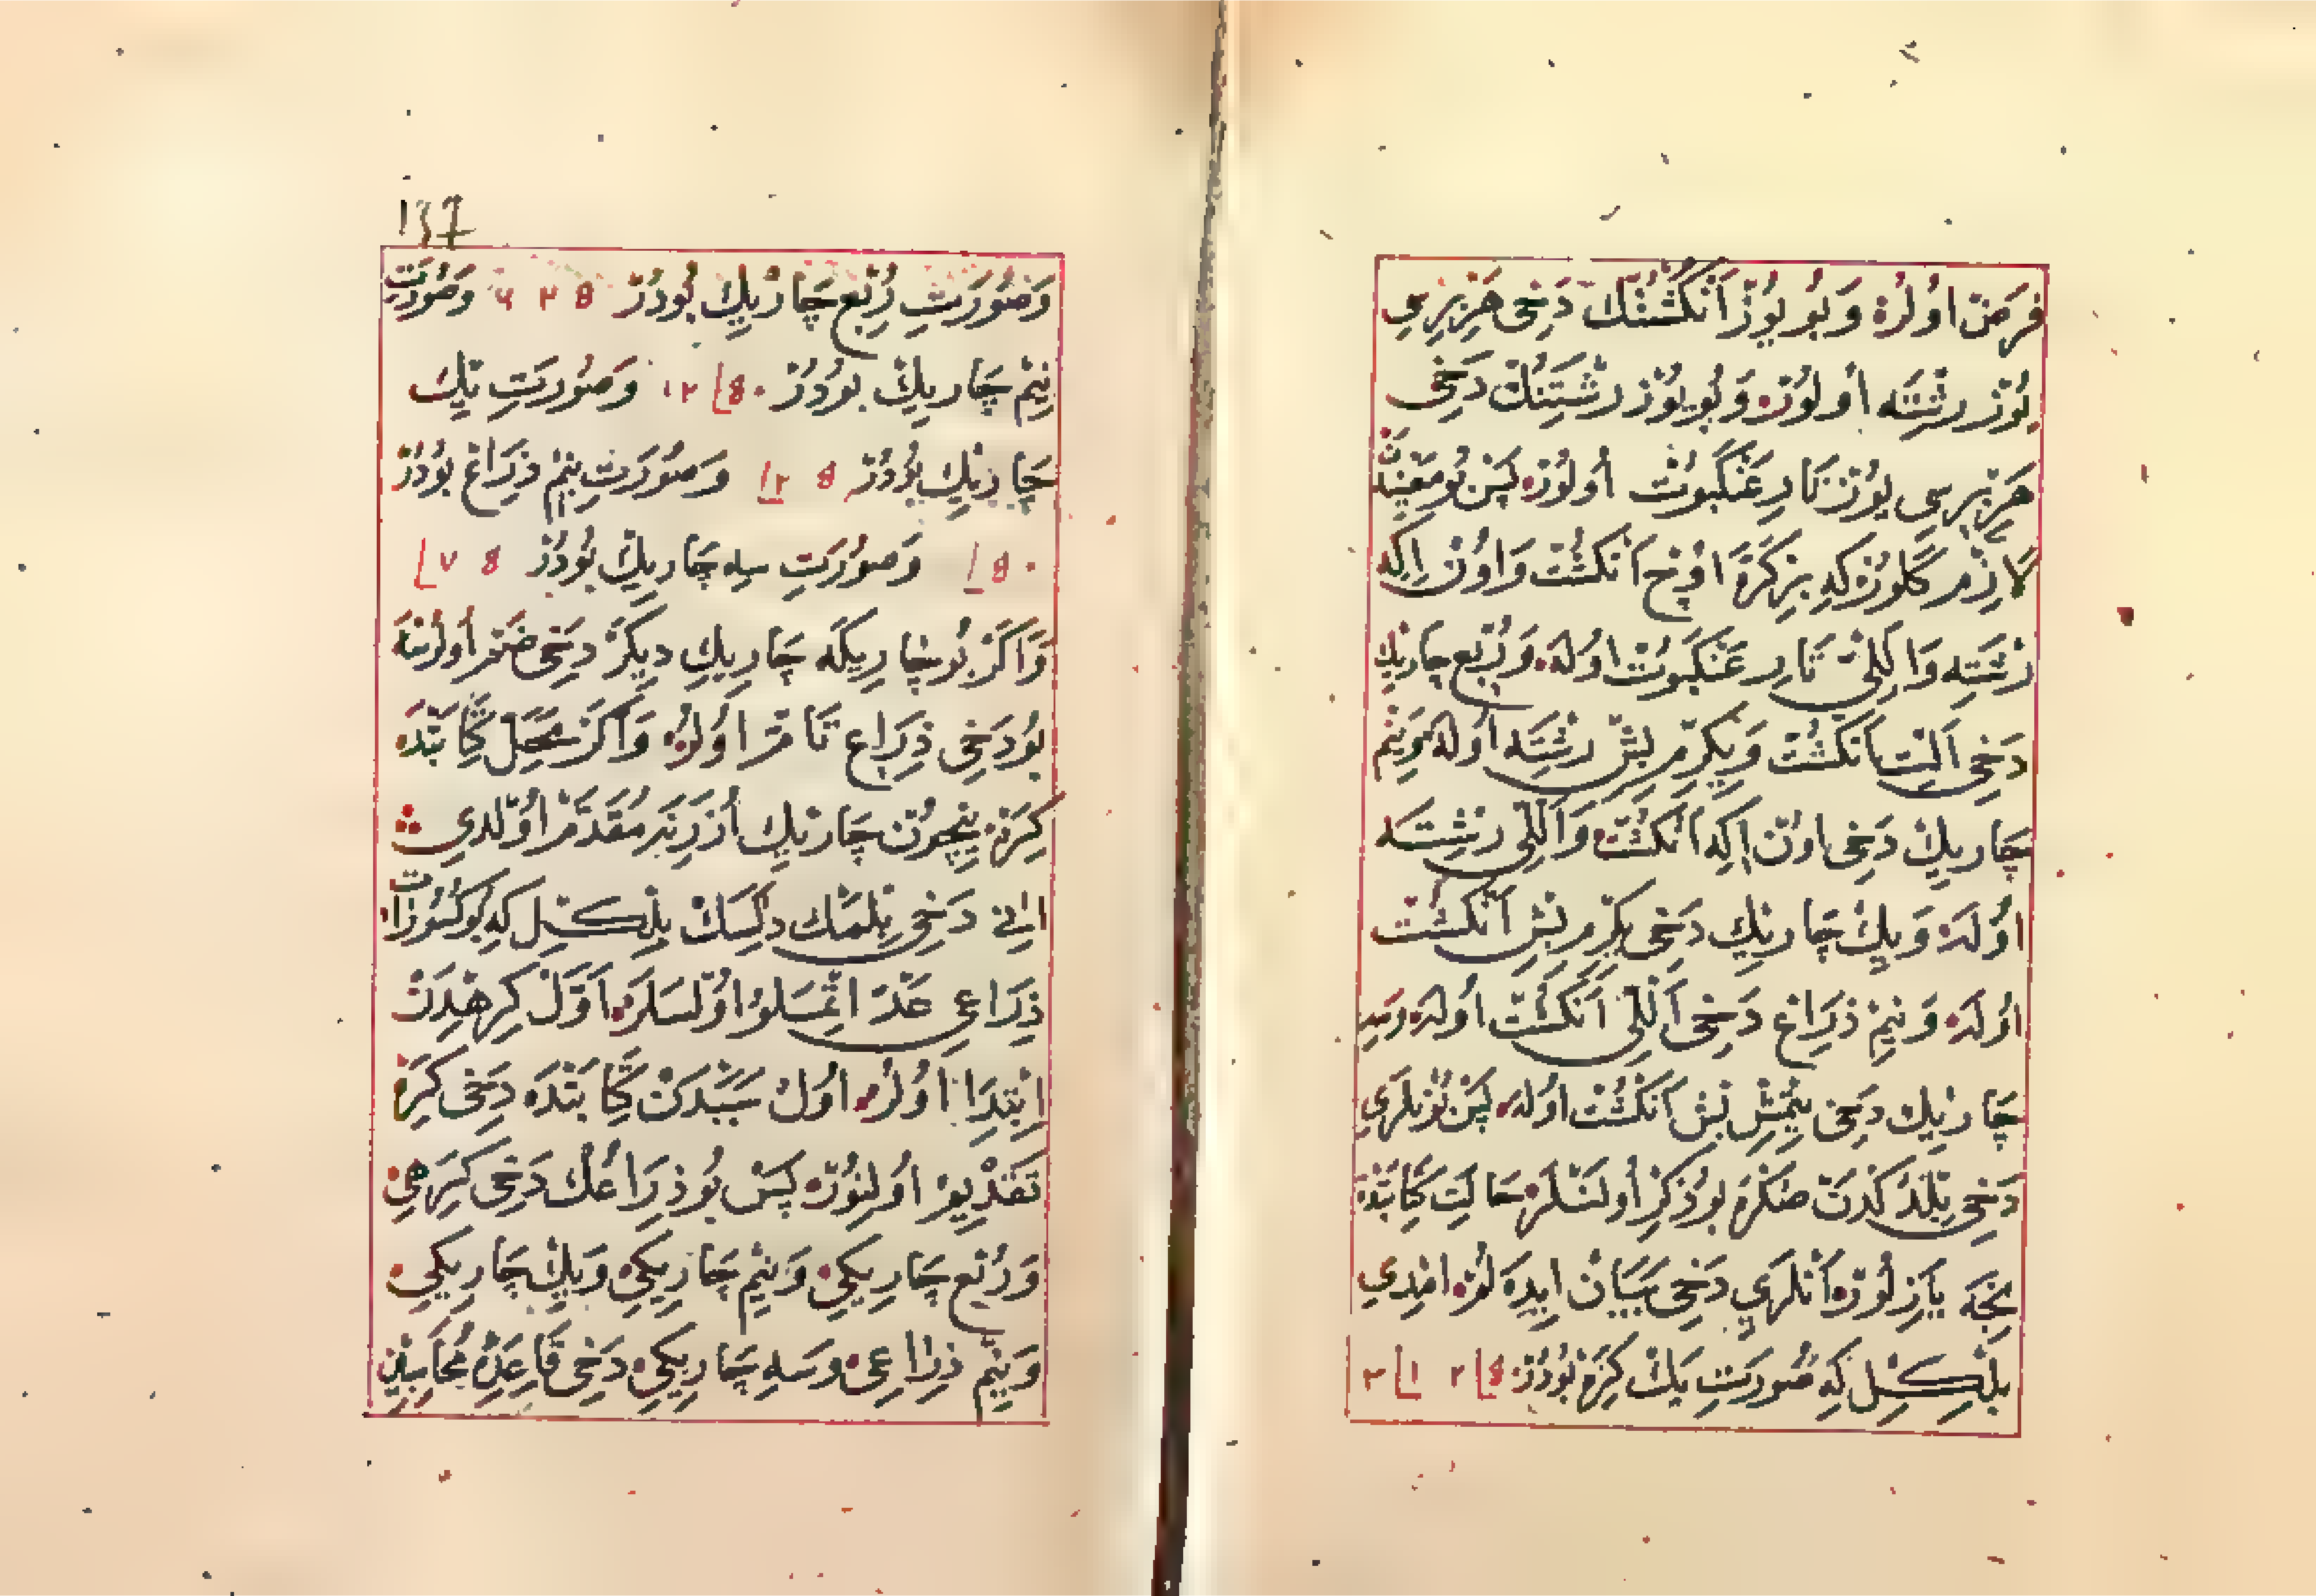 فرض اولر و بو يوز انكشتنك دخى هر بريسي
يوز رشته اولور و بو يوز رشتنك دخى
هر بريسي يوز تار عنكبوت اولور پس بو معنيدن
لازم كلور كه بر كره اوچ انكشت و اون ايكه
رشته و اللى تار عنكبوت اوله و ربع چاريك
دخى التى انكشت و يكرم بش رشته اوله و نيم
چاريك دخى اون ايكه انكشت و اللى رشته
اوله و يك چاريك دخى يكرم بش انكشت
اوله و نيم ذراع دخى اللى انكشت اوله و سه
چاريك دخى يتمش بش انكشت اوله پس بونلري
دخى بلدكدن صكره بو ذكر اولنلر حالت كتابتده
نجه يازلور انلري دخى بيان ايده لوم امدي
بلكل كه صورت يك كره بودر
وصورت ربع چاريك بودر ٥ ٢ ٦ وصورت
نيم چاريك بودر ٥٠ ١٢ وصورت يك
چاريك بودر ٥ ١٢ وصورت نيم ذراع بودر
٥٠ وصورت سه چاريك بودر ٥ ٧
واكر بو چاريكه چاريك ديكر دخى ضم اولنسه
بو دخى ذراع تام اولور واكر محل كتابتده
كره نيچون چاريك اوزرينه مقدم اولدي
انى دخى بلمك دلرسك بلكل كه بو كسورات
ذراعى عد اتمسلو اولسلر اول كرهدن
ابتدا اولر اول سببدن كتابتده دخى كره
تقديم اولنور پس بو ذراعك دخى كرهى
وربع چاريكى ونيم چاريكى ويك چاريكى
ونيم ذراعى وسه چاريكى دخى قاعده محاسبين